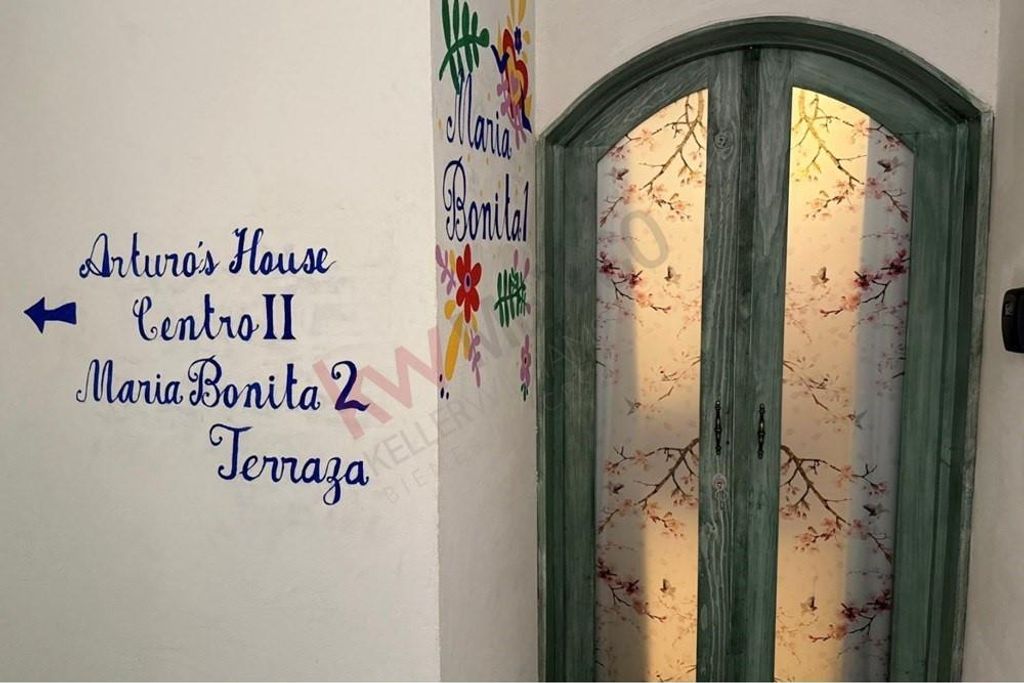 Arturo's House
Centro II
Maria Bonita 2
Terraza
Maria
Bonita 1
kw
KELLERWILLIAMS